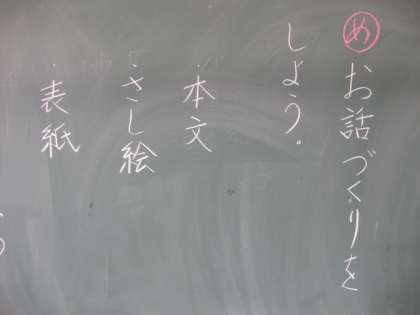 め お話づくりを
しよう。
・本文
・さし絵
・表紙